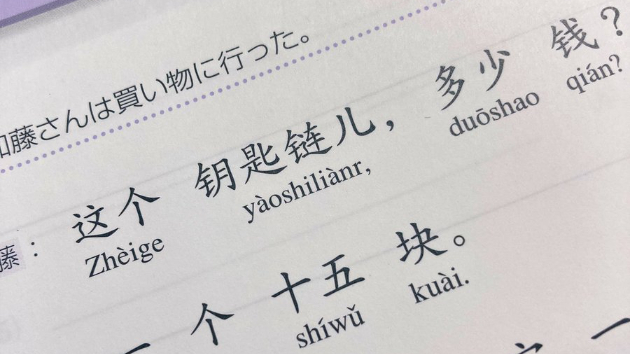 加藤さんは買い物に行った。
藤： 这个 钥匙链儿， 多少 钱？
Zhèige yàoshiliànr, duōshao qián?
一 个 十五 块。
shíwǔ kuài.
一